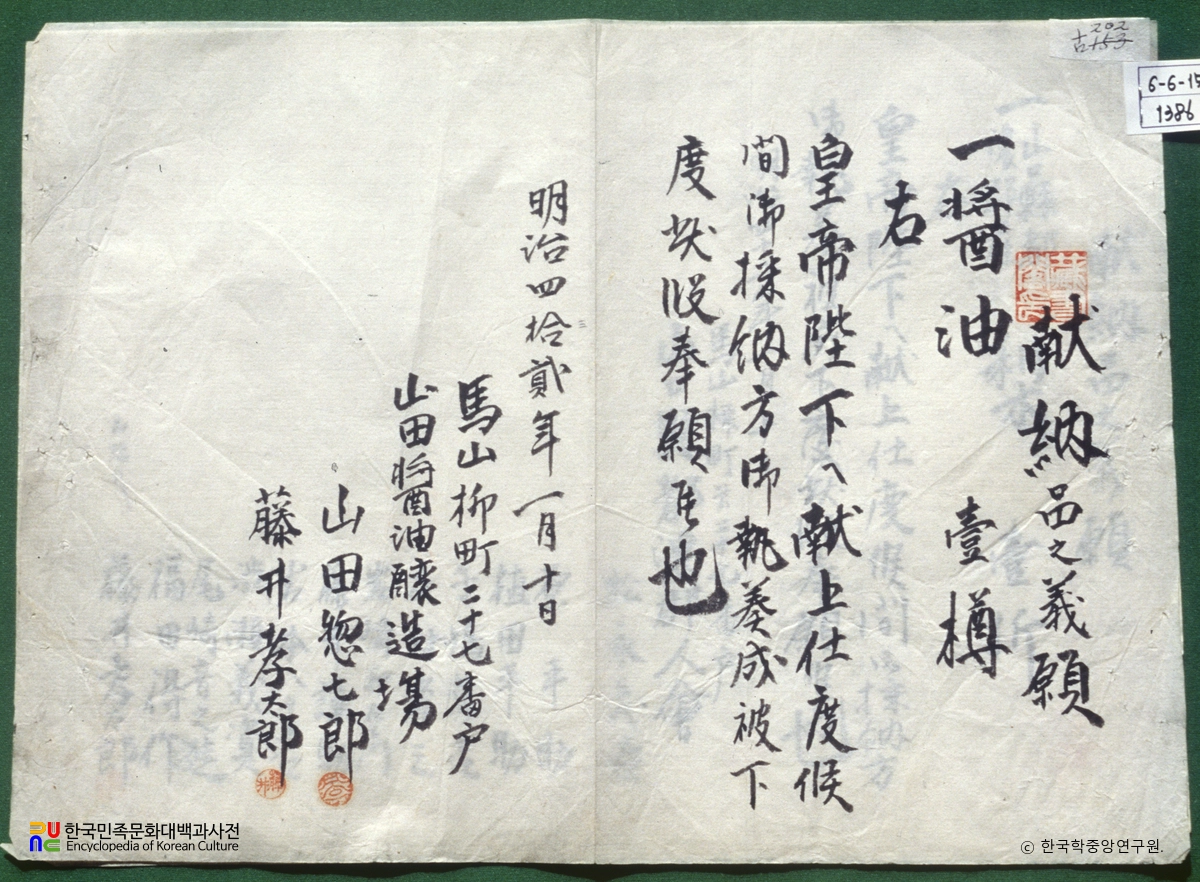 献納品之義願
一醬油 壹樽
右
皇帝陛下へ献上仕度候
間御採納方御執奏成被下
度状段奉願候也
明治四拾貳年一月十日
馬山柳町二十七番戸
山田醬油釀造場
山田惣七郎
藤井孝太郎
古153
202
6-6-15
1386
한국민족문화대백과사전
Encyclopedia of Korean Culture
© 한국학중앙연구원.